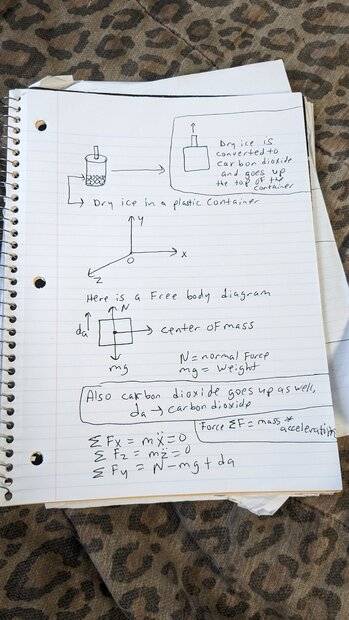 Dry ice is
converted to
carbon dioxide
and goes up
the top of the
container
Dry ice in a plastic container
y
x
O
Z
Here is a Free body diagram
N
da
center of mass
mg
N = normal Force
mg = Weight
Also carbon dioxide goes up as well,
da → carbon dioxide
Force ΣF = mass * acceleration
Σ Fx = mẍ = 0
Σ Fz = mz̈ = 0
Σ Fy = N - mg + da